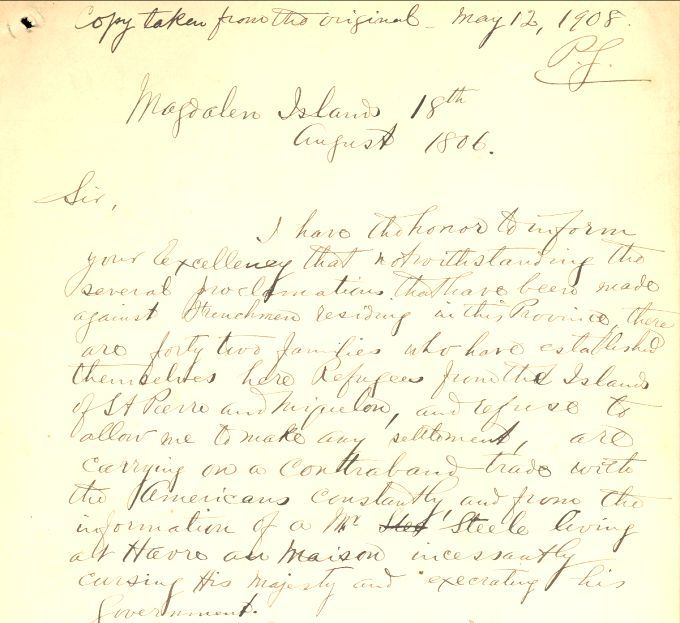 Copy taken from the original - May 12, 1908.
P.G.
Magdalen Island 18th
August 1806.
Sir,
I have the honor to inform
your Excellency that notwithstanding the
several proclamations that have been made
against Frenchmen residing in this Province, there
are forty two families who have established
themselves here Refugees from the Islands
of St Pierre and Miquelon, and refuse to
allow me to make any settlement, are
carrying on a contraband trade with
the Americans constantly, and from the
information of a Mr Steele living
at Havre au Maison incessantly
cursing His Majesty and execrating his
government.